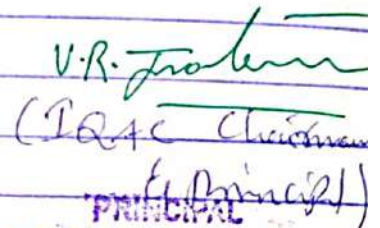 V.R.
(IQAC Chairman
& Principal)
PRINCIPAL